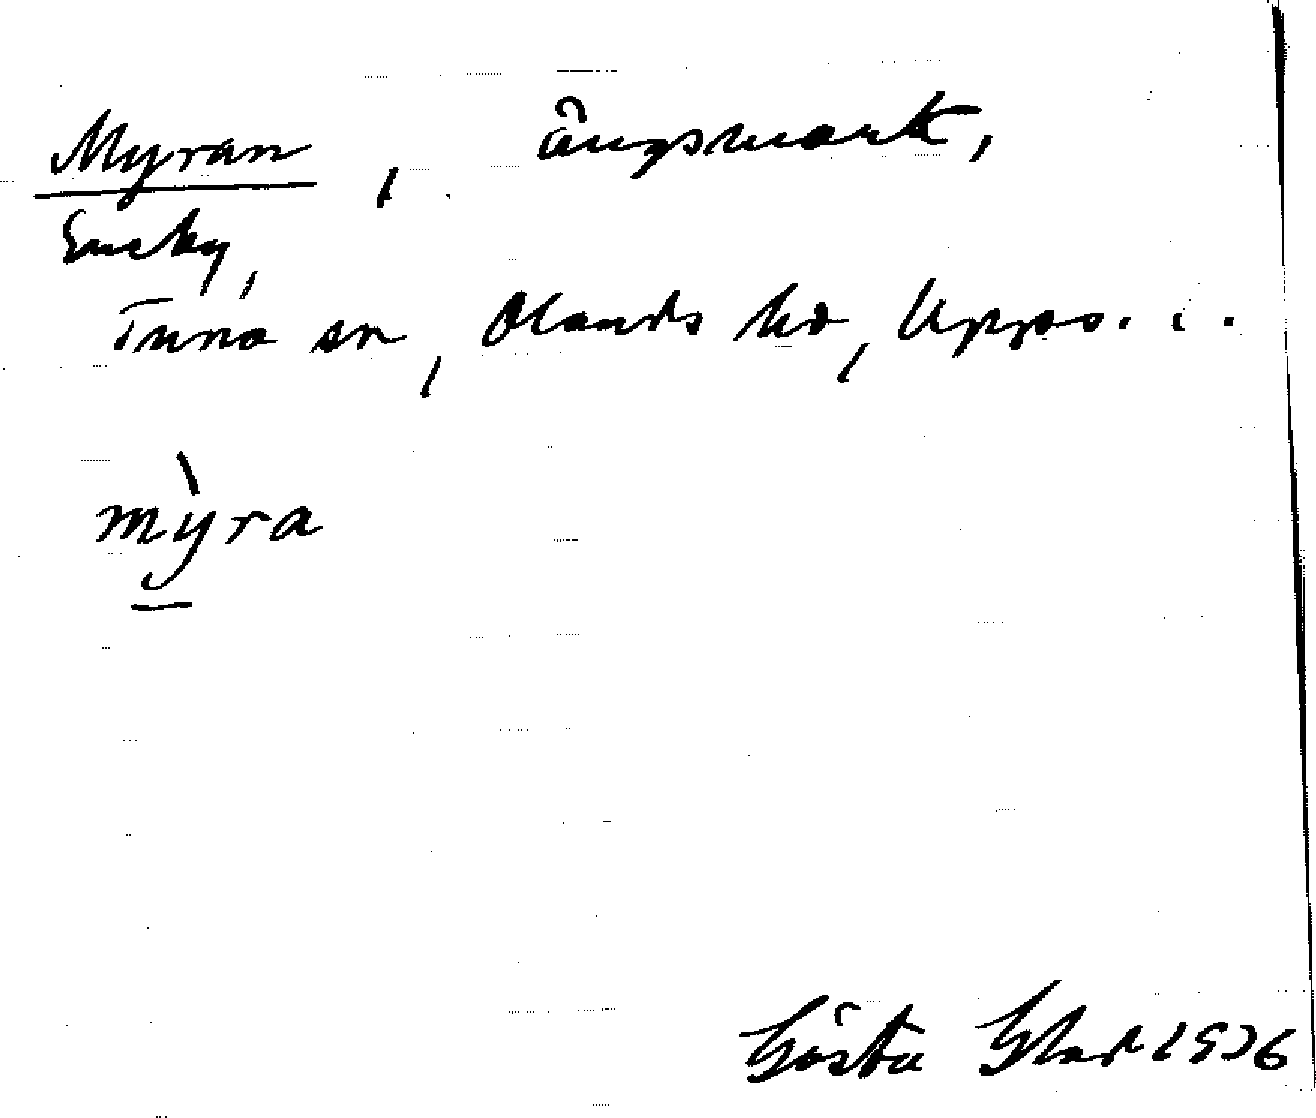 Myran, ängsmark,
Eneby,
Tuna sn, Olands hd, Upps. l.
mỳra
Gösta Glad 1936